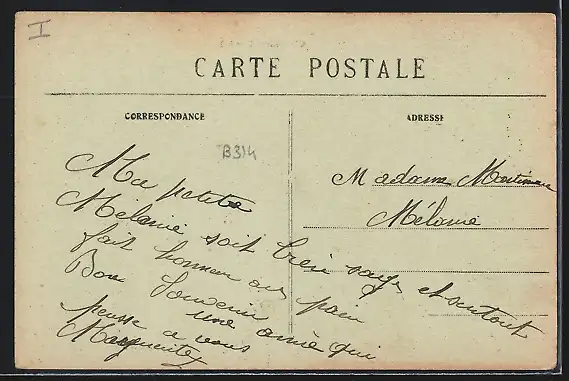 I
CARTE POSTALE
CORRESPONDANCE
ADRESSE
B314
Ma petite
Mélanie soit bien sage et surtout
fait honneur au pain
Bon Souvenir
une amie qui
pense a vous
Marguerite
Madame Martineau
Mélanie